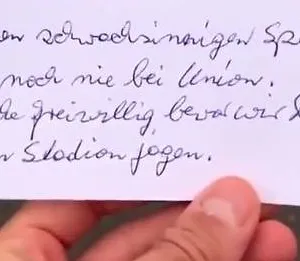 en schwachsinnigen Sp
noch nie bei Union.
de freiwillig, bevor wir
n Stadion jagen.